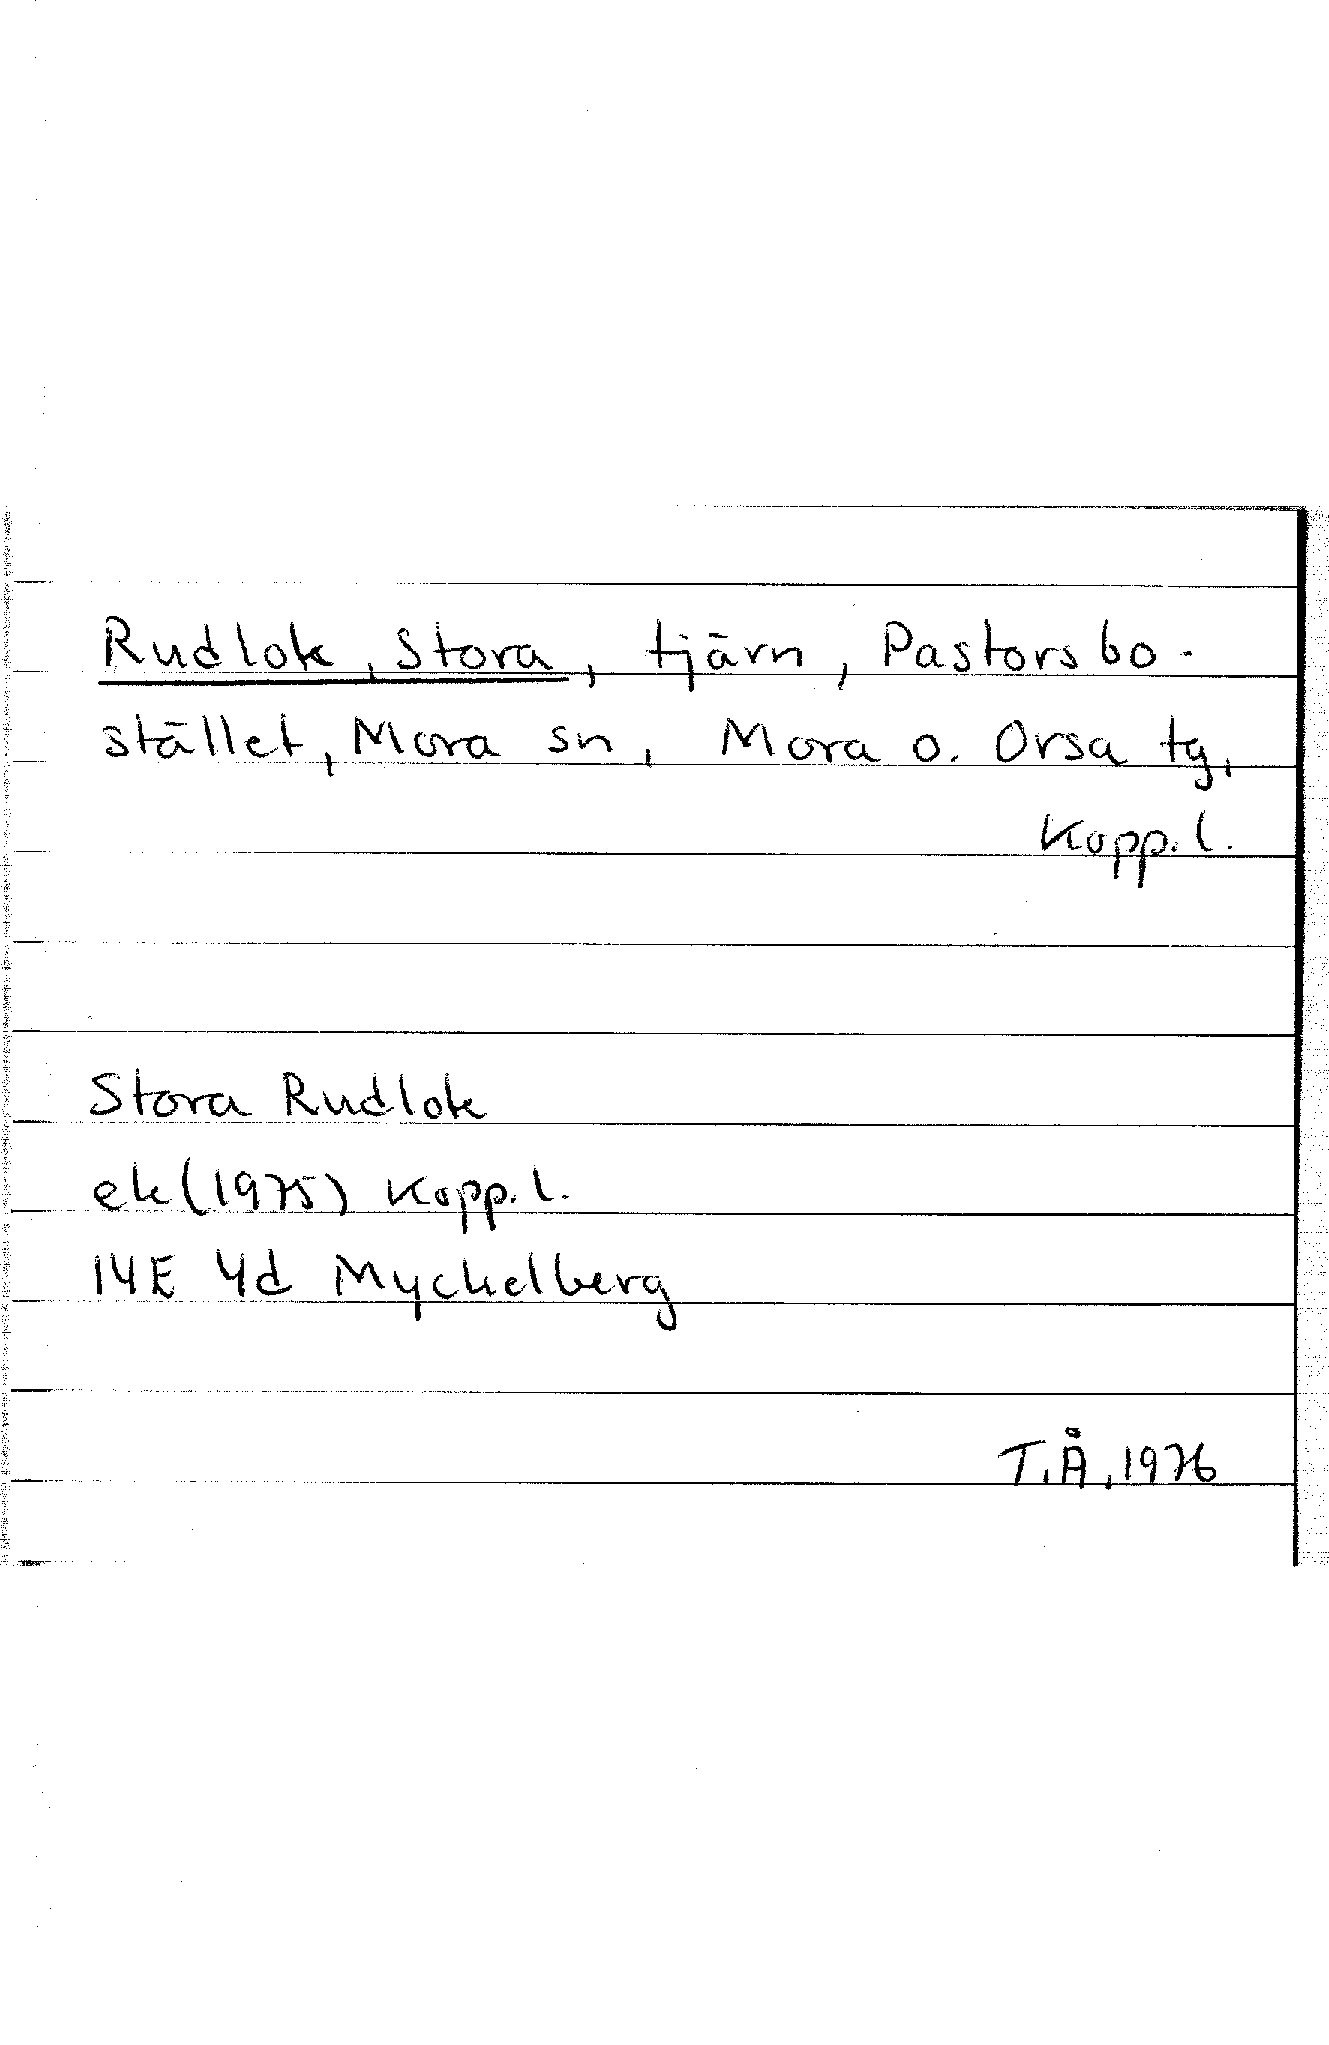 Rudlok, Stora, tjärn, Pastorsbo-
stället, Mora sn, Mora o. Orsa tg,
Kopp. l.
Stora Rudlok
ek (1975) Kopp. l.
14E 4d Myckelberg
T.Å, 1976